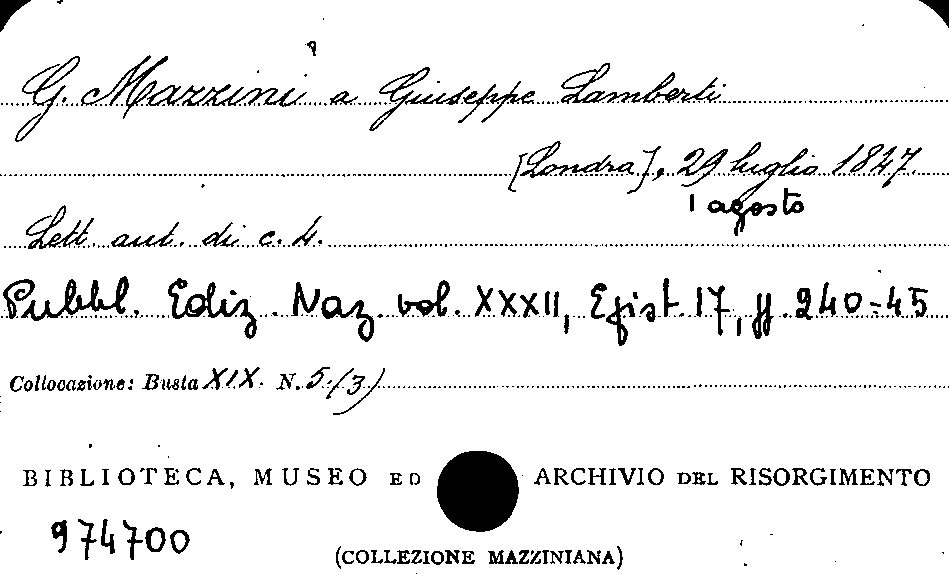 G. Mazzini a Giuseppe Lamberti
[Londra], 29 luglio 1847.
1 agosto
Lett. aut. di c. 4.
Pubbl. Ediz. Naz. vol. XXXII, Epist. 17, pp. 240-45
Collocazione: Busta XIX. N. 5/(3)
BIBLIOTECA, MUSEO ED ARCHIVIO DEL RISORGIMENTO
974700
(COLLEZIONE MAZZINIANA)